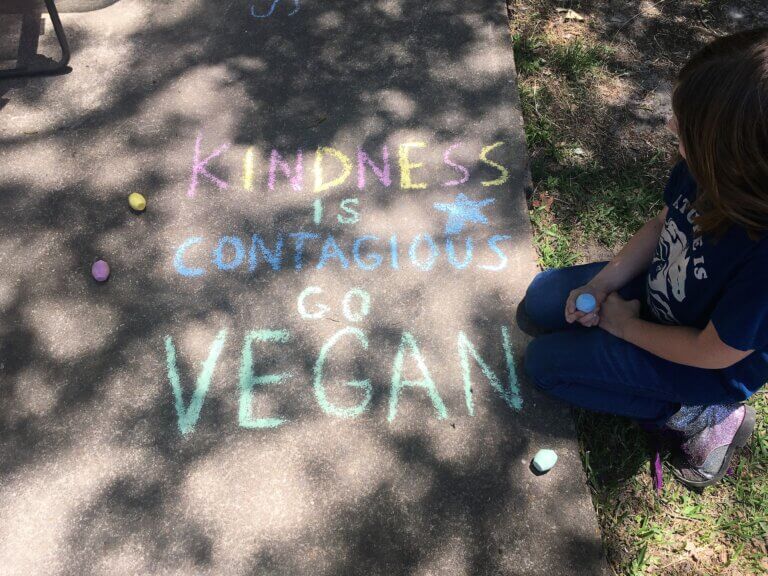 KINDNESS
IS
CONTAGIOUS
GO
VEGAN